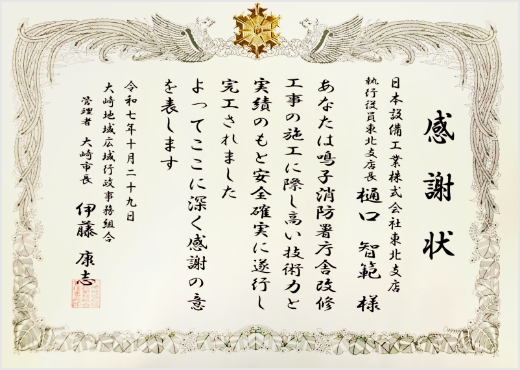 感謝状
日本設備工業株式会社東北支店
執行役員東北支店長 樋口 智範 様
あなたは鳴子消防署庁舎改修
工事の施工に際し高い技術力と
実績のもと安全確実に遂行し
完工されました
よってここに深く感謝の意
を表します
令和七年十月二十九日
大崎地域広域行政事務組合
管理者 大崎市長 伊藤 康志